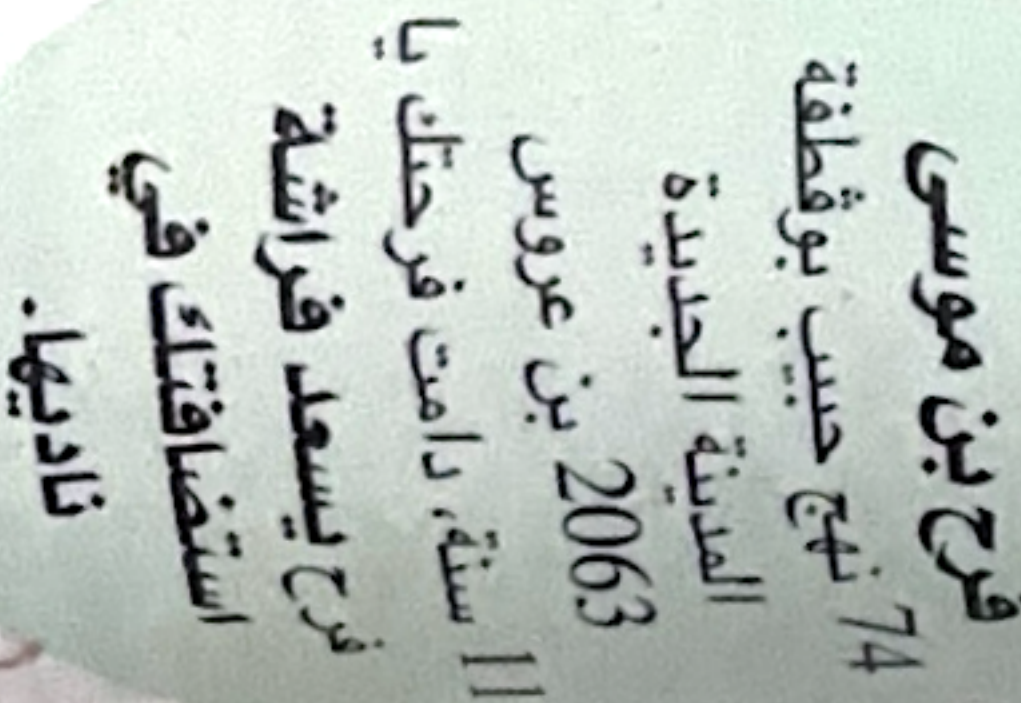 فرح بن موسى
74 نهج حبيب بوقطفة
المدينة الجديدة
2063 بن عروس
11 سنة، دامت فرحتك يا
فرح يسعد فراشة
استضافتك في
ناديها.